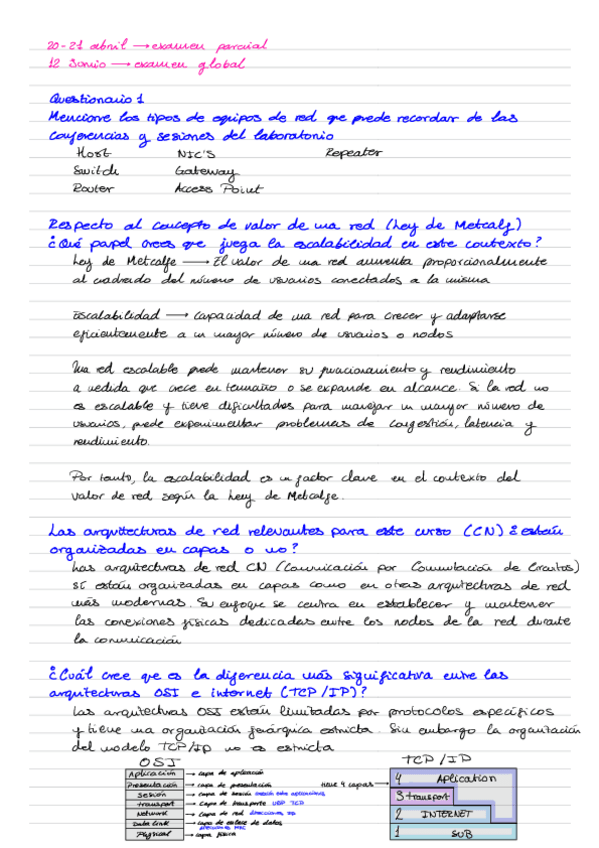 20-21 abril → examen parcial
12 Junio → examen global
Questionario 1
Mencione los tipos de equipos de red que puede recordar de las
conferencias y sesiones del laboratorio
Host NIC'S Repeater
Switch Gateway
Router Access Point
Respecto al concepto de valor de una red (Ley de Metcalf)
¿Qué papel crees que juega la escalabilidad en este contexto?
Ley de Metcalfe → El valor de una red aumenta proporcionalmente
al cuadrado del número de usuarios conectados a la misma
Escalabilidad → capacidad de una red para crecer y adaptarse
eficientemente a un mayor número de usuarios o nodos
Una red escalable puede mantener su funcionamiento y rendimiento
a medida que crece en tamaño o se expande en alcance. Si la red no
es escalable y tiene dificultades para manejar un mayor número de
usuarios, puede experimentar problemas de congestión, latencia y
rendimiento.
Por tanto, la escalabilidad es un factor clave en el contexto del
valor de red según la Ley de Metcalfe.
Las arquitecturas de red relevantes para este curso (CN) ¿están
organizadas en capas o no?
Las arquitecturas de red CN (Comunicación por Conmutación de Circuitos)
sí están organizadas en capas como en otras arquitecturas de red
más modernas. Su enfoque se centra en establecer y mantener
las conexiones físicas dedicadas entre los nodos de la red durante
la comunicación
¿Cuál cree que es la diferencia más significativa entre las
arquitecturas OSI e internet (TCP/IP)?
Las arquitecturas OSI están limitadas por protocolos específicos
y tiene una organización jerárquica estricta. Sin embargo la organización
del modelo TCP/IP no es estricta
OSI TCP/IP
Aplicación → capa de aplicación
Presentación → capa de presentación tiene 4 capas → 4 Aplication
Sesión → capa de sesión
transport → Capa de transporte UDP TCP 3 transport
Network → Capa de red direcciones IP 2 INTERNET
Data link → capa de enlace de datos
direcciones MAC
Physical → capa física 1 SUB